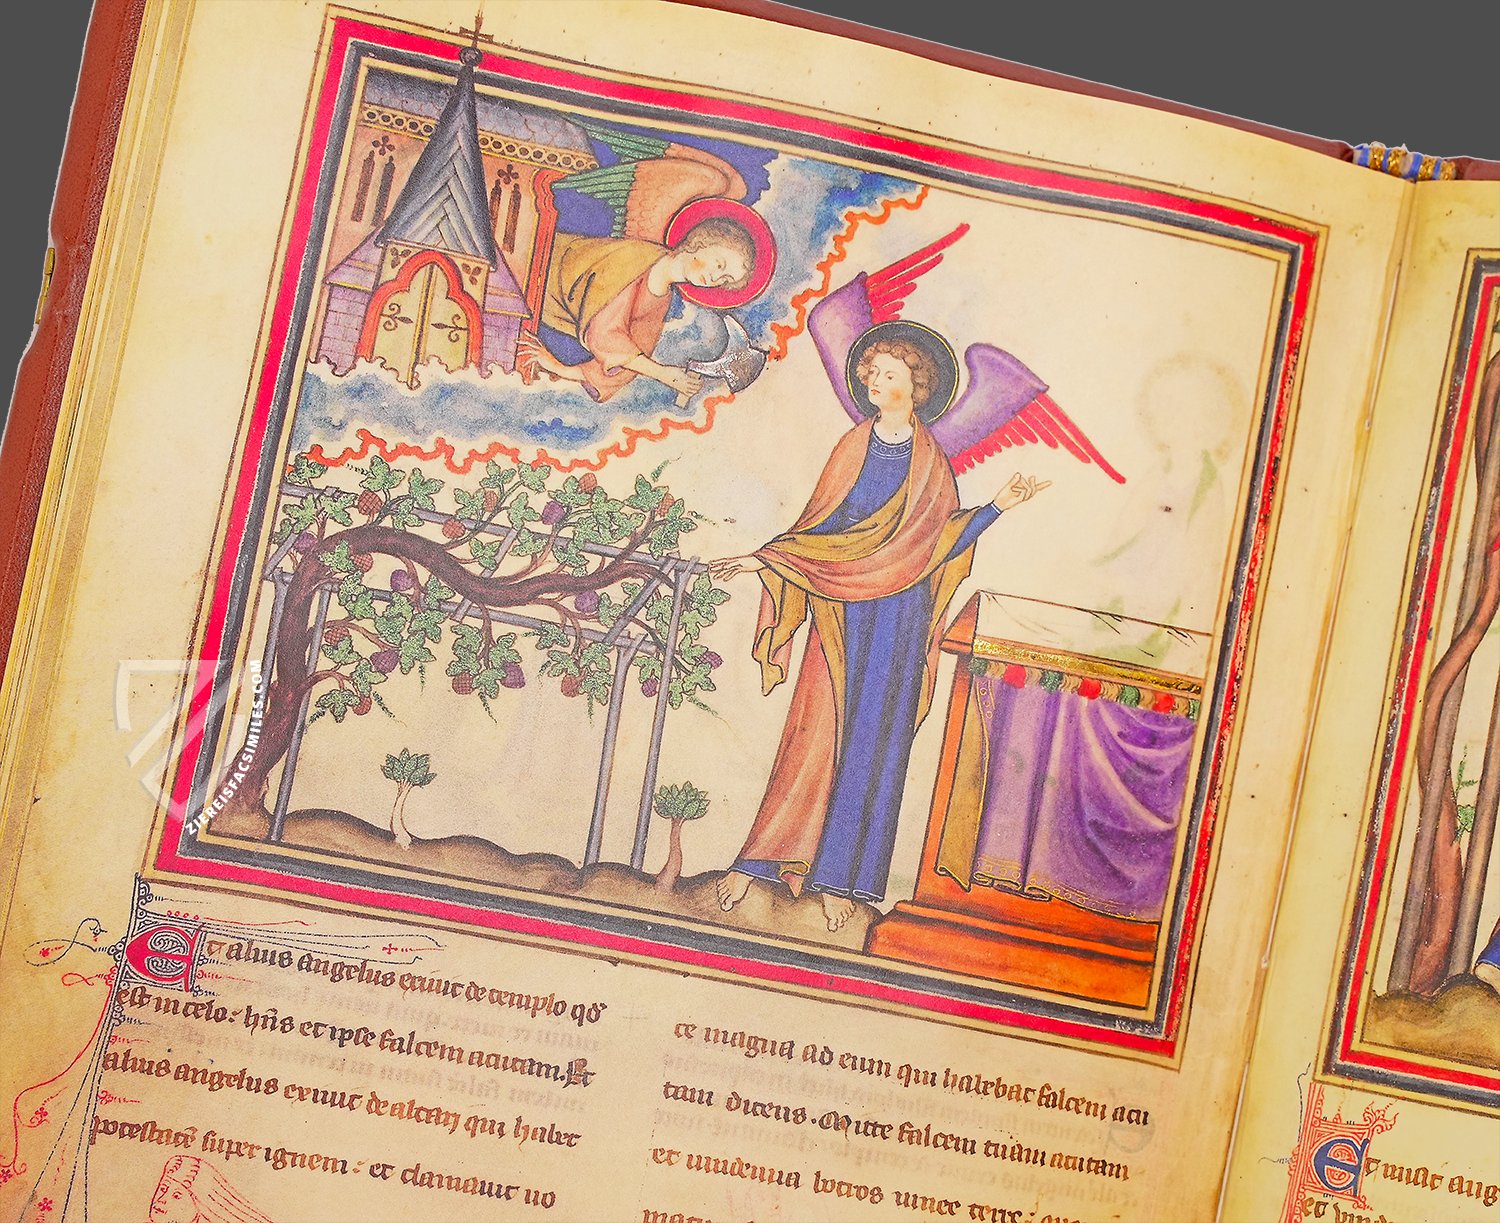 Et alius angelus exiuit de templo qd̄
est in celo: hn̄s et ipse falcem acutam. Et
alius angelus exiuit de altari qui habet
potestatē super ignem: et clamauit uo
ce magna ad eum qui habebat falcem acu
tam dicens. Mitte falcem tuam acutam
et uindemia botros uinee terre:
Et misit ang
et uind
ZIEREISFACSIMILES.COM